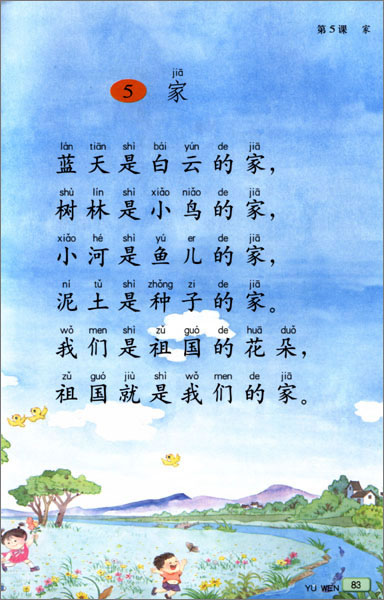 第5课 家
jiā
5 家
lán tiān shì bái yún de jiā
蓝天是白云的家，
shù lín shì xiǎo niǎo de jiā
树林是小鸟的家，
xiǎo hé shì yú er de jiā
小河是鱼儿的家，
ní tǔ shì zhǒng zi de jiā
泥土是种子的家。
wǒ men shì zǔ guó de huā duǒ
我们是祖国的花朵，
zǔ guó jiù shì wǒ men de jiā
祖国就是我们的家。
YU WEN 83